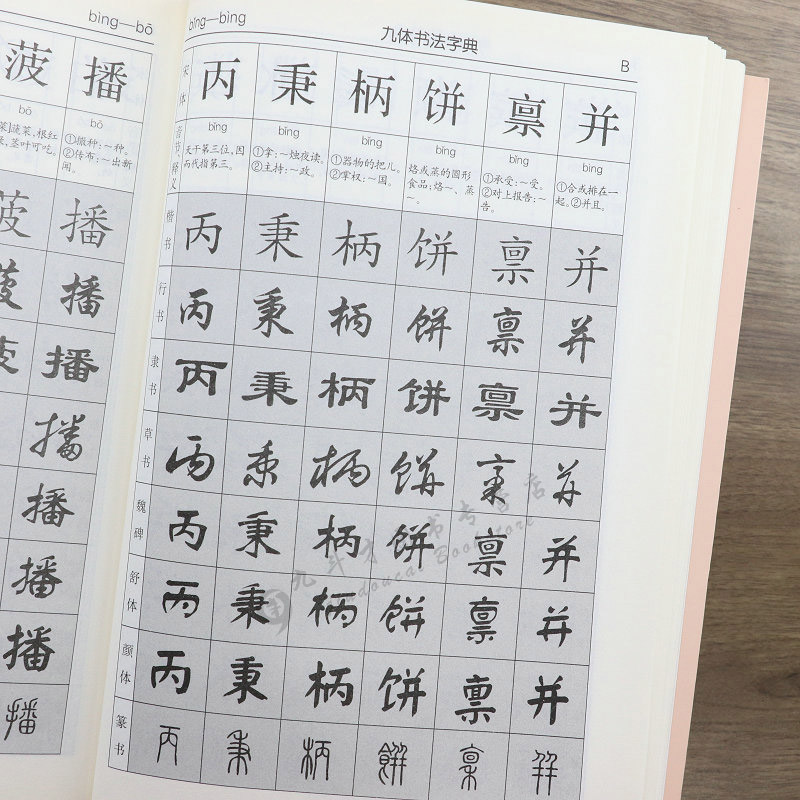 bìng—bō
菠 播
bō bō
菜|蔬菜,根红 ①撒种:~种。
,茎叶可吃。 ②传布:~出新
闻。
菠 播
菠 播
菠 播
播
播
播
播
播
bǐng—bìng 九体书法字典 B
宋体 丙 秉 柄 饼 禀 并
音节、释义 bǐng bǐng bǐng bǐng bǐng bìng
天干第三位,因而代指第三。
①拿:~烛夜读。②主持:~政。
①器物的把儿。②掌权:~国。
烙或蒸的圆形食品:烙~、蒸~。
①承受:~受。②对上报告:~告。
①合或排在一起。②并且。
楷书 丙 秉 柄 饼 禀 并
行书 丙 秉 柄 饼 禀 并
隶书 丙 秉 柄 饼 禀 并
草书 丙 秉 柄 饼 禀 并
魏碑 丙 秉 柄 饼 禀 并
舒体 丙 秉 柄 饼 禀 并
颜体 丙 秉 柄 饼 禀 并
篆书 丙 秉 柄 餅 禀 并